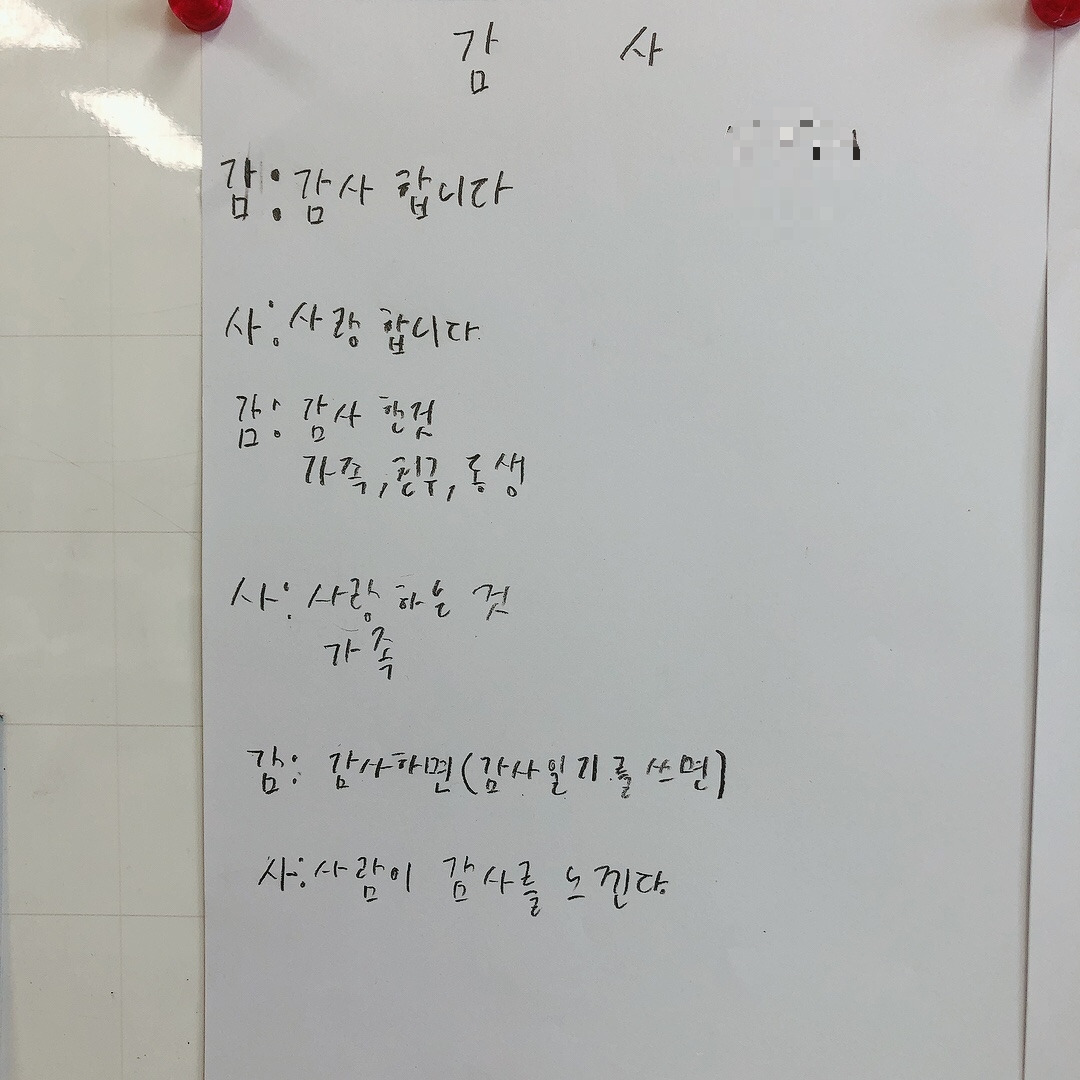 감 사
감:감사 합니다
사:사랑 합니다
감: 감사 한것
가족,친구,동생
사: 사랑 하는 것
가족
감: 감사하면(감사일기를 쓰면)
사:사람이 감사를 느낀다